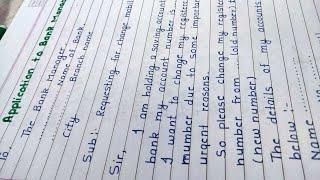 Application to Bank Manag
To,
The Bank Manager
........... Name of Bank
........... Branch name
City
Sub:- Requesting for change mobil
Sir,
I am holding a saving account
bank my account number is
I want to change my register
number due to some important
urgent reasons.
So please change my registere
number from (old number) t
(new number)
The details of my accounts
below:-
Name